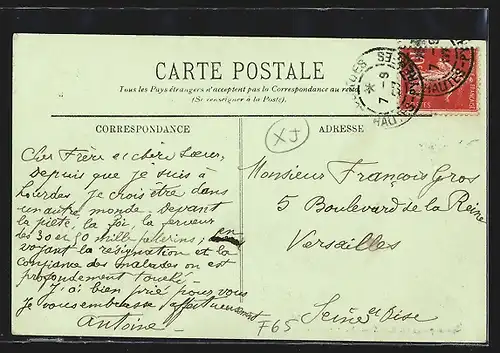 CARTE POSTALE
Tous les Pays étrangers n'acceptent pas la Correspondance au
(Se renseigner à la Poste.)
CORRESPONDANCE
ADRESSE
XJ
Cher Frère et chère Sœur,
Depuis que je suis à
Lourdes je crois être dans
un autre monde. Devant
la piété, la foi, la ferveur
des 30 ou 40 mille pèlerins, en
voyant la résignation et la
confiance des malades on est
profondément touché
J'ai bien prié pour vous
Je vous embrasse affectueusement
Antoine
Monsieur François Gros
5 Boulevard de la Reine
Versailles
Seine et Oise
F65
HAUTES
7 - 9
HAUTES